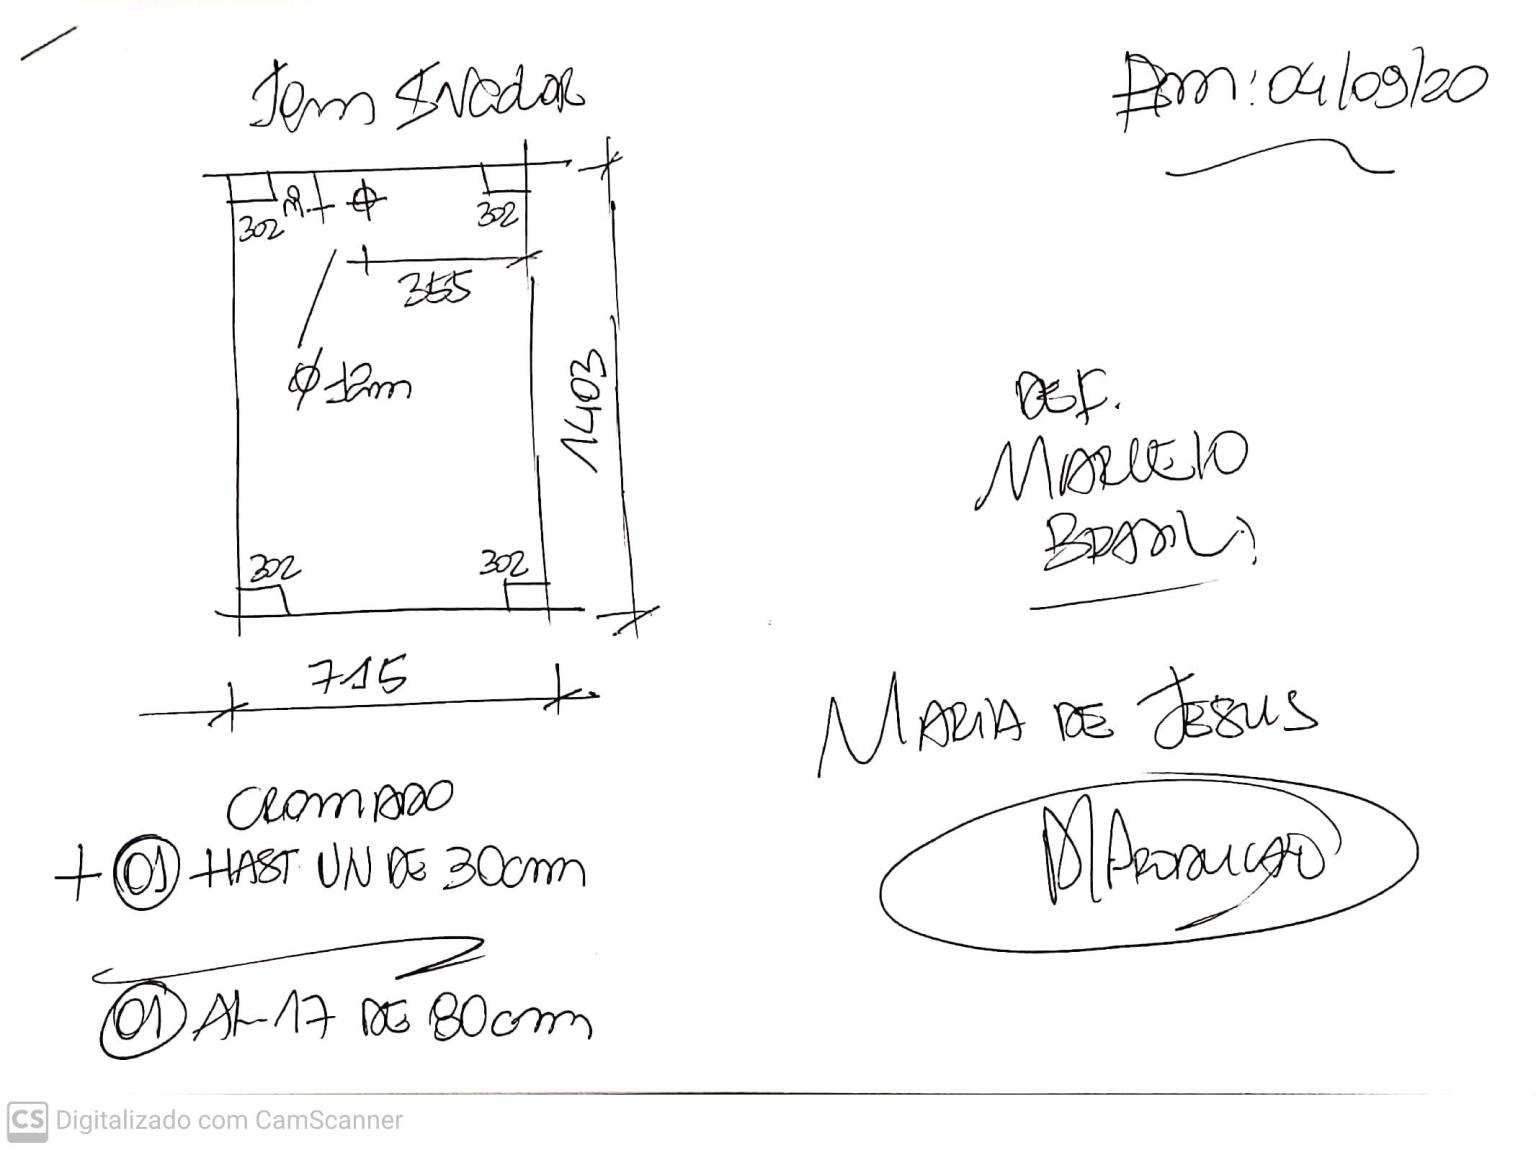 Am: 04/09/20
302
302
355
Ø 12m
1403
302
302
715
DEF.
BRASIL
MARIA DE JESUS
CROMADO
+ 01 HAST UN DE 30cm
01 AL-17 DE 80cm
PRODUCAO
CS Digitalizado com CamScanner